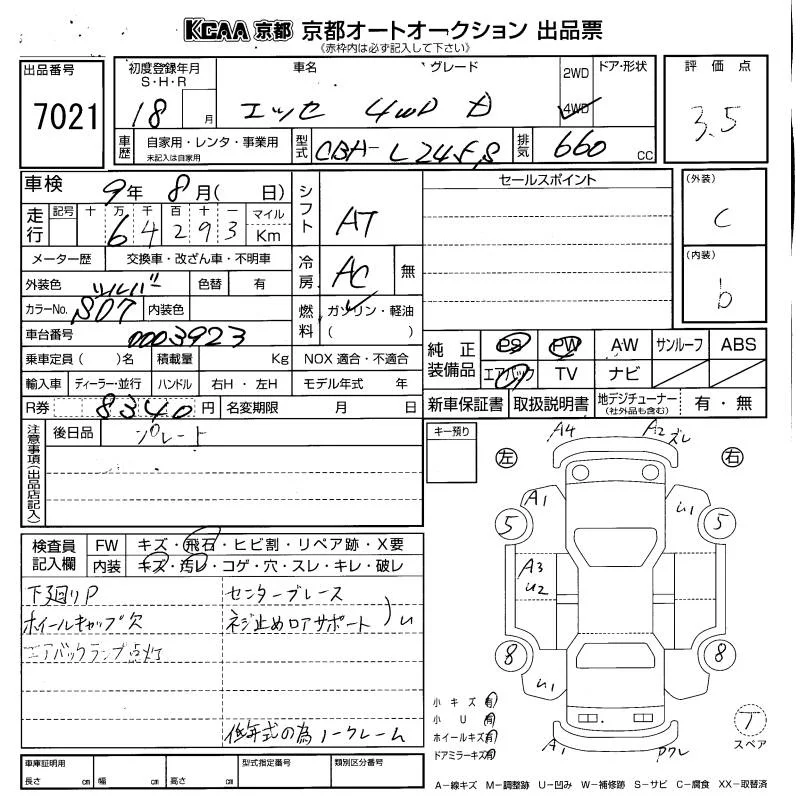 KCAA 京都 京都オートオークション 出品票
《赤枠内は必ず記入して下さい》
出品番号 7021
初度登録年月 S・H・R 18 月
車名 エッセ 4WD
グレード D
2WD 4WD ドア・形状
評価点 3.5
車歴 自家用・レンタ・事業用 未記入は自家用
型式 CBA-L245S
排気 660 CC
車検 9年 8月( 日)
シフト AT
セールスポイント
(外装) C
走行 記号 十 万 千 百 十 一 マイル Km
6 4 2 9 3
メーター歴 交換車・改ざん車・不明車
冷房 AC 無
(内装) b
外装色 シルバー 色替 有
カラーNo. S07 内装色
燃料 ガソリン・軽油 ( )
車台番号 0003923
乗車定員( )名 積載量 Kg NOX 適合・不適合
純正装備品 PS PW AW サンルーフ ABS
エアバック TV ナビ
輸入車 ディーラー・並行 ハンドル 右H・左H モデル年式 年
R券 8340円 名変期限 月 日
新車保証書 取扱説明書 地デジチューナー (社外品も含む) 有・無
注意事項(出品店記入) 後日品 プレート
キー預り
左 右
A4 A2 ズレ
A1 U1
5 5
A3
U2
8 8
U1
A1 ワレ
検査員記入欄 FW キズ・飛石・ヒビ割・リペア跡・X要
内装 キズ・汚レ・コゲ・穴・スレ・キレ・破レ
下廻りP センターブレース
ホイールキャップ欠 ネジ止めロアサポート )U
エアバックランプ点灯
低年式の為ノークレーム
小キズ 有
小U 有
ホイールキズ 有
ドアミラーキズ 有
T
スペア
車庫証明用 長さ cm 幅 cm 高さ cm 型式指定番号 類別区分番号
A−線キズ M−調整跡 U−凹み W−補修跡 S−サビ C−腐食 XX−取替済